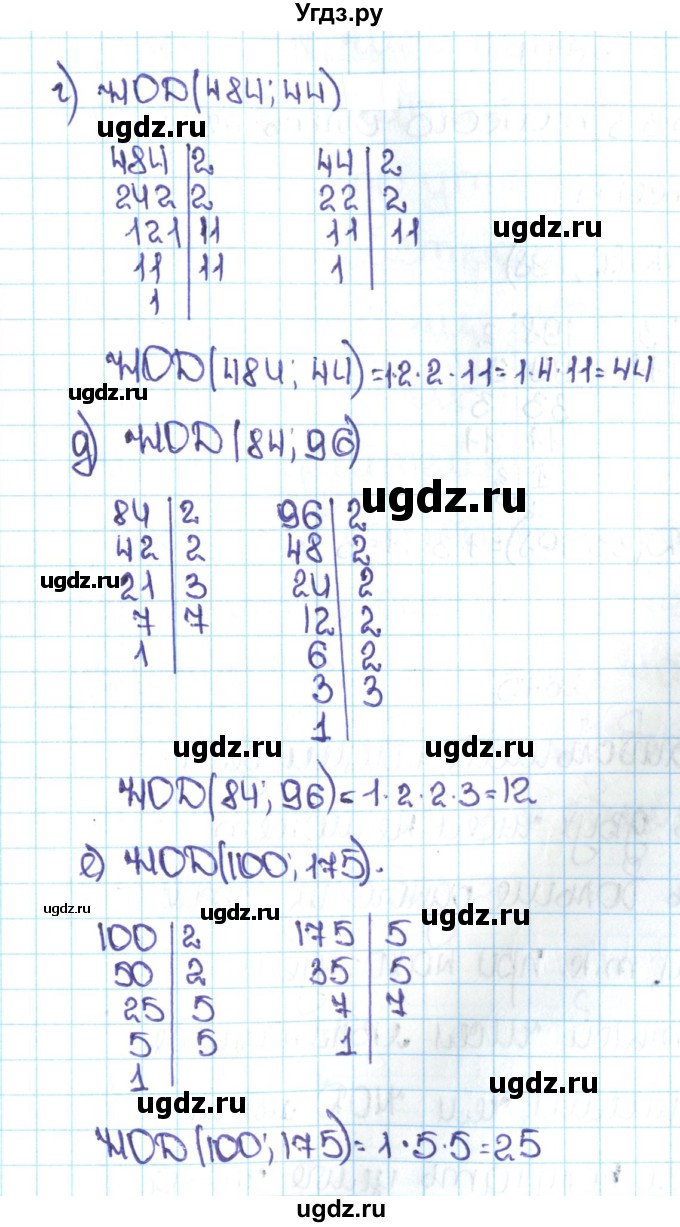 Угдз.ру
г) НОД(484; 44)
ugdz.ru
484 | 2    44 | 2
242 | 2    22 | 2
121 | 11    11 | 11
ugdz.ru
11 | 11    1
1
НОД(484; 44) = 1·2·2·11 = 1·4·11 = 44
ugdz.ru
д) НОД(84; 96)
ugdz.ru
84 | 2    96 | 2
42 | 2    48 | 2
ugdz.ru
21 | 3    24 | 2
7 | 7    12 | 2
1    6 | 2
3 | 3
1
ugdz.ru    ugdz.ru
НОД(84; 96) = 1·2·2·3 = 12
ugdz.ru
е) НОД(100; 175).
ugdz.ru    ugdz.ru    ugdz.ru
100 | 2    175 | 5
50 | 2    35 | 5
25 | 5    7 | 7
5 | 5    1
1
ugdz.ru
ugdz.ru
НОД(100; 175) = 1·5·5 = 25
ugdz.ru    ugdz.ru